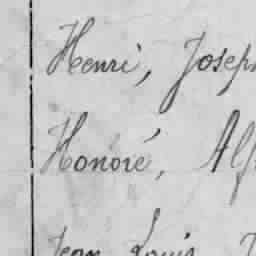 Henri, Joseph
Honoré, Alf
Jean Louis